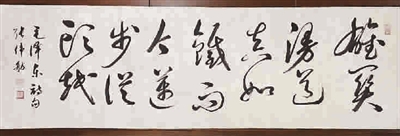 雄關
漫道
真如
鐵而
今邁
步從
頭越
毛澤東詩句
張偉